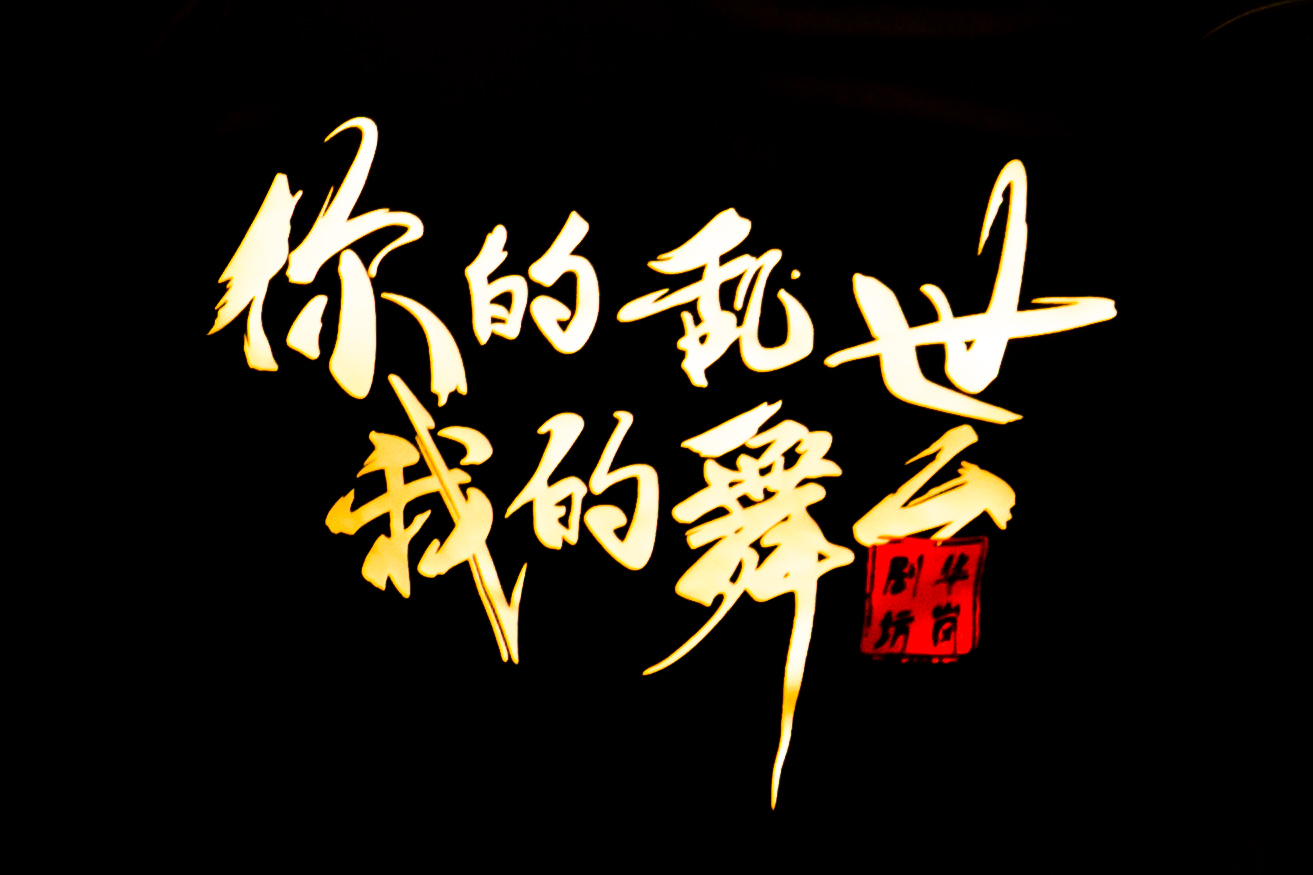 你的乱世
我的舞云
华岗
剧坊